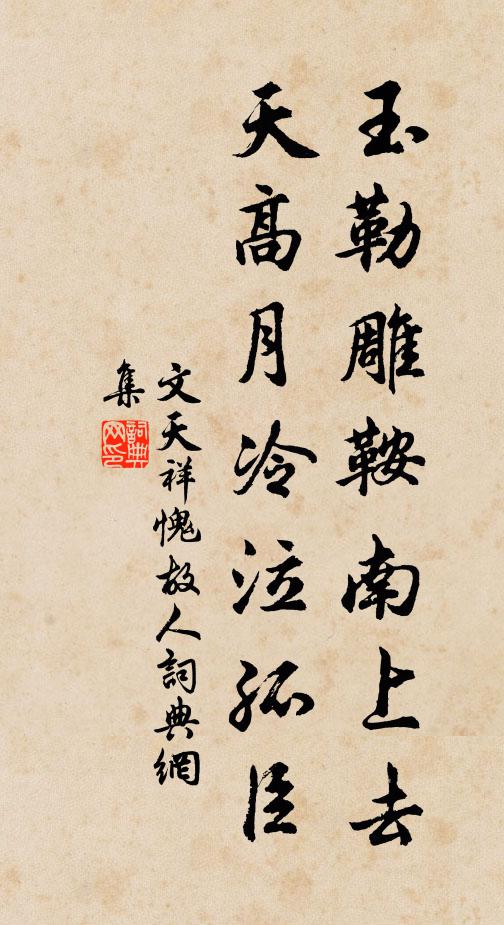 玉勒雕鞍南上去
天高月冷泣孤臣
文天祥愧故人詞典網
集
詞典
网印